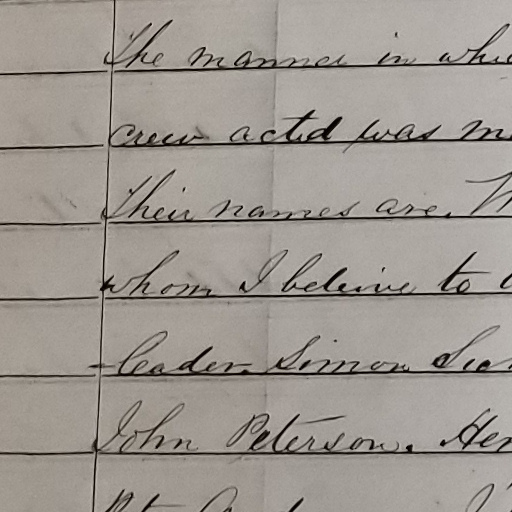 The manner in
crew acted was
Their names are.
whom I beleive to
leader. Simon
John Peterson.